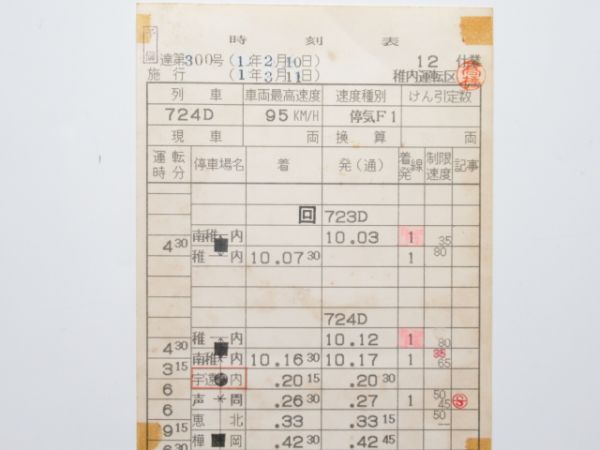 予備
時刻表
達第300号(1年2月10日) 12 仕業
施行 (1年3月11日) 稚内運転区
列車 車両最高速度 速度種別 けん引定数
724D 95KM/H 停気F1
現車 両 換算 両
運転時分 停車場名 着 発(通) 着発線 制限速度 記事
回 723D
南稚内 10.03 1 35
4 30
稚内 10.07 30 1 80
724D
稚内 10.12 1 80
4 30
南稚内 10.16 30 10.17 1 35 65
3 15
宇遠内 .20 15 .20 30
6
声問 .26 30 .27 1 50 45 S
6
恵北 .33 .33 15 50 —
9 15
樺岡 .42 30 .42 45
6 30